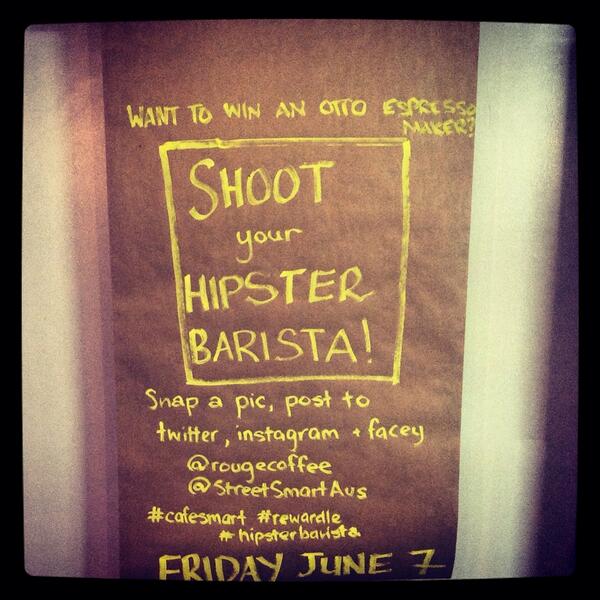 WANT TO WIN AN OTTO ESPRESSO
MAKER?
SHOOT
your
HIPSTER
BARISTA!
Snap a pic, post to
twitter, instagram + facey
@rougecoffee
@StreetSmartAus
#cafesmart #rewardle
#hipsterbarista
FRIDAY JUNE 7